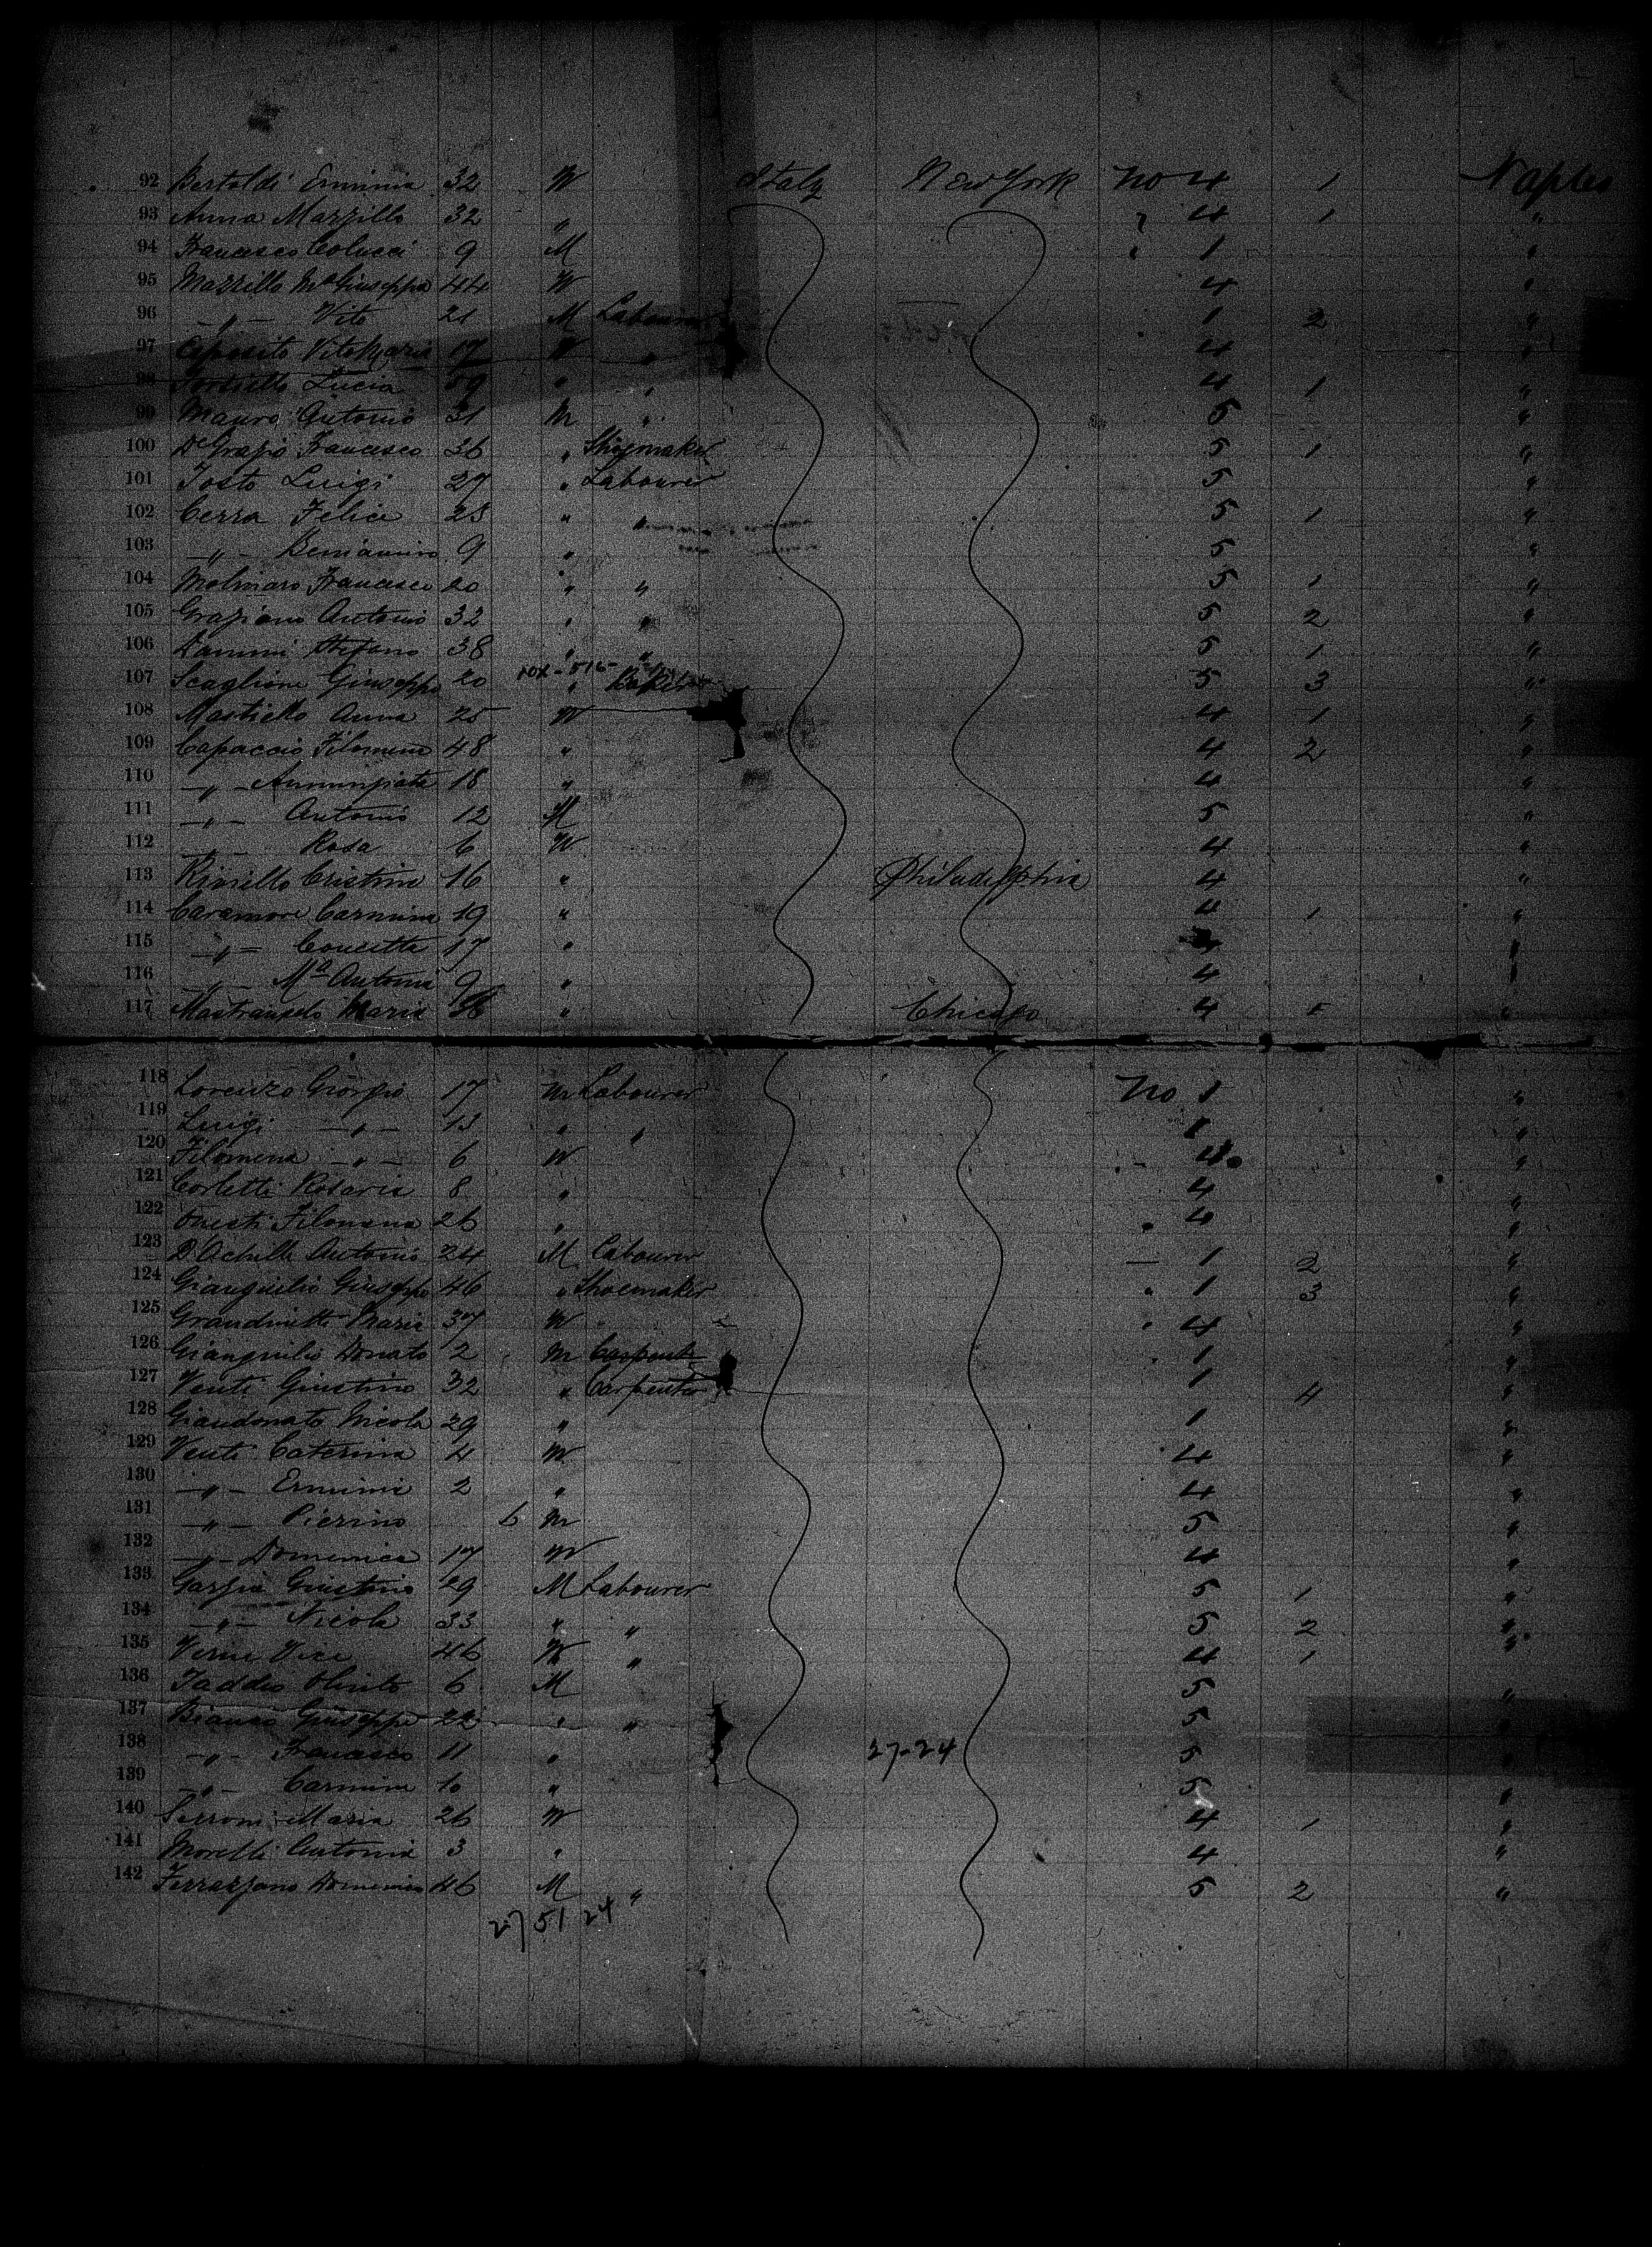 92 Bertoldi Erminia 32 W Italy New York No 4 1 Naples
93 Anna Mazzillo 32 " " 4 1 "
94 Francesco Colucci 9 M " 1 "
95 Mazzillo Ma Giuseppa 44 W 4 "
96 -"- Vito 21 M Labourer 1 2 "
97 Esposito Vito Maria 17 W " 4 "
98 Lucia 59 " " 4 1 "
99 Mauro Antonio 31 M " 5 "
100 De Grazio Francesco 36 " Shoemaker 5 1 "
101 Tosto Luigi 27 " Labourer 5 "
102 Cerra Felice 25 " " 5 1 "
103 -"- Beniamino 9 " 5 "
104 Molinaro Francesco 20 " " 5 1 "
105 Graziano Antonio 32 " " 5 2 "
106 Stefano 38 " " 5 1 "
107 Scaglione Giuseppe 20 " Baker 5 3 "
108 Mastiello Anna 25 W 4 1 "
109 Capaccio Filomena 48 " 4 2 "
110 -"- Annunziata 18 " 4 "
111 -"- Antonio 12 M 5 "
112 Rosa 6 W 4 "
113 Cristina 16 " Philadelphia 4 "
114 Caramore Carmina 19 " 4 1 "
115 -"- Concetta 17 " "
116 Ma Antonia 9 " 4 "
117 Mastrangelo Maria " Chicago 4 "
118 Lorenzo Giorgio 17 M Labourer No 1 "
119 Luigi -"- 13 " " 1 "
120 Filomena -"- 6 W 4 "
121 Corletti Rosaria 8 " 4 "
122 Onesti Filomena 26 " " 4 "
123 D'Achille Antonio 24 M Labourer — 1 2 "
124 Gianguilio Giuseppe 46 " Shoemaker " 1 3 "
125 Grandinetti Maria 37 W " 4 "
126 Gianguilio Donato 2 M 1 "
127 Venti Giustino 32 " Carpenter 1 4 "
128 Giandonato Nicola 29 " 1 "
129 Venti Caterina 4 W 4 "
130 -"- Ermini 2 " 4 "
131 -"- Pierino 6 M 5 "
132 -"- Domenica 17 W 4 "
133 Garzia Giustino 29 M Labourer 5 1 "
134 -"- Nicola 33 " " 5 2 "
135 46 W " 4 1 "
136 Taddeo Olinto 6 M 5 "
137 Bianco Giuseppe 22 " " 5 "
138 -"- Francesco 11 " 27-24 5 "
139 -"- Carmine 10 " 5 "
140 Serroni Maria 26 W 4 1 "
141 Morelli Antonia 3 " 4 "
142 Ferrazzano Domenico 46 M " 5 2 "
27 51 24